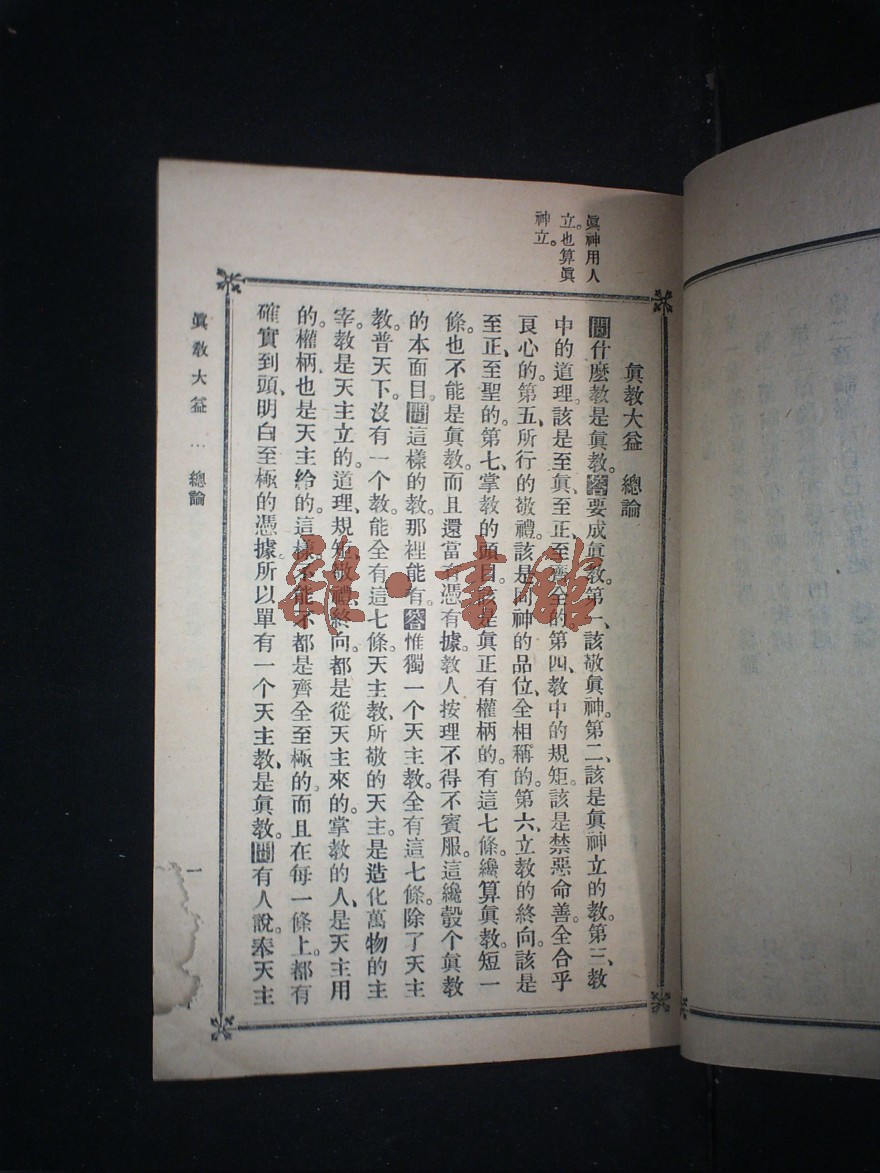 眞神用人
立。也算眞
神立。
眞教大益　總論
問什麽教是眞教。答要成眞教。第一、該敬眞神。第二、該是眞神立的教。第三、教
中的道理。該是至眞、至正、至齊全的。第四、教中的規矩。該是禁惡命善。全合乎
良心的。第五、所行的敬禮。該是同神的品位、全相稱的。第六、立教的終向。該是
至正、至聖的。第七、掌教的頭目。該是眞正有權柄的。有這七條。纔算眞教。短一
條。也不能是眞教。而且還當有憑有據。教人按理不得不賓服。這纔彀个眞教
的本面目。問這樣的教。那裡能有。答惟獨一个天主教。全有這七條。除了天主
教。普天下。沒有一个教。能全有這七條。天主教、所敬的天主。是造化萬物的主
宰。教是天主立的。道理、規矩、敬禮、終向。都是從天主來的。掌教的人、是天主用
的。權柄也是天主給的。這樣不能不都是齊全至極的。而且在每一條上。都有
確實到頭、明白至極的憑據。所以單有一个天主教、是眞教。問有人說。奉天主
眞教大益…總論
一
雜·書館